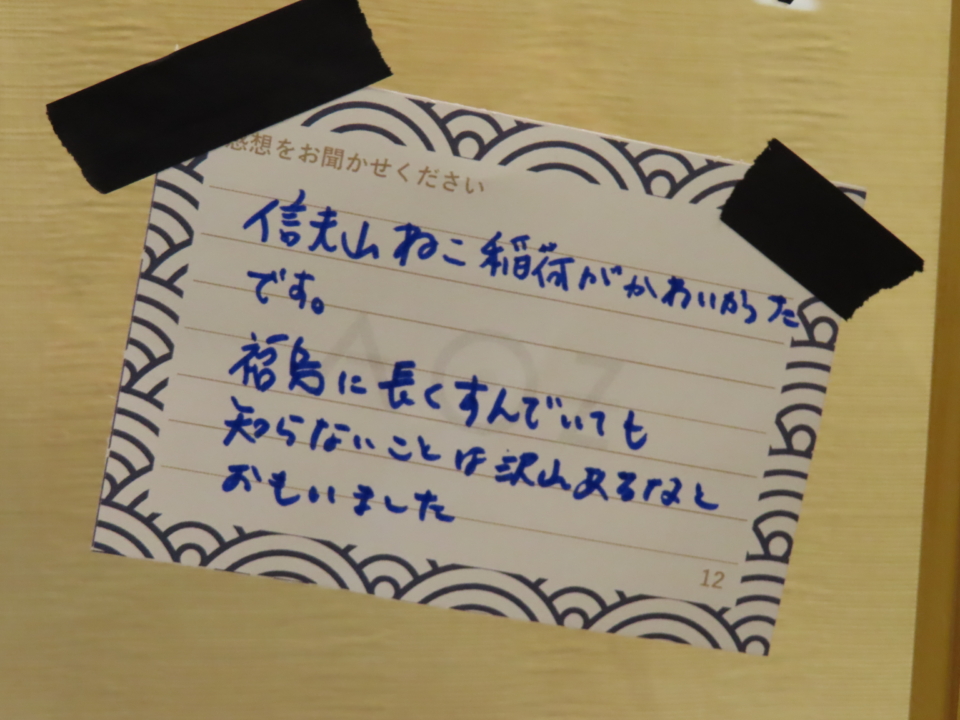 感想をお聞かせください
信夫山ねこ稲荷がかわいかった
です。
福島に長くすんでいても
知らないことは沢山あるなと
おもいました
12